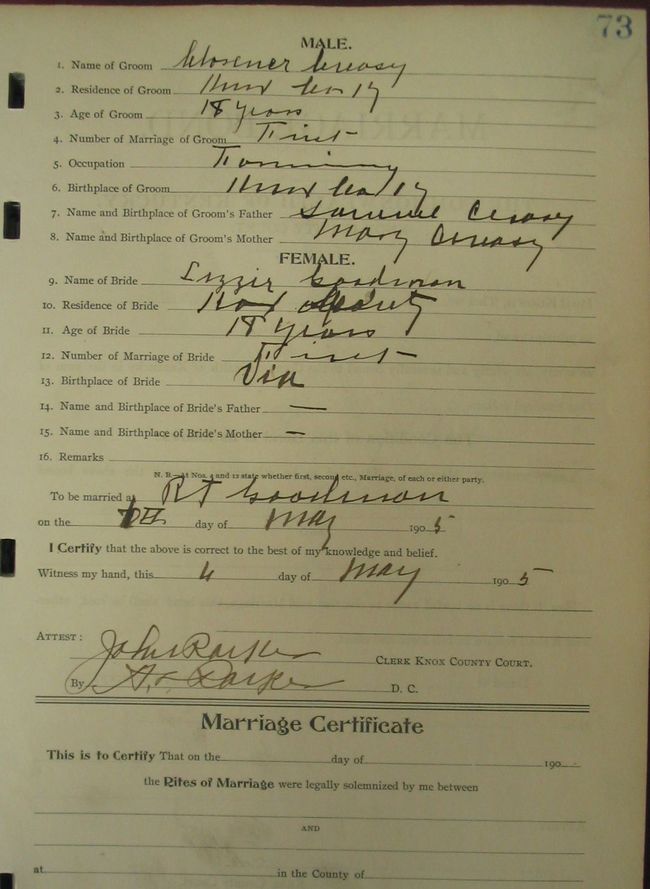 73
MALE.
1. Name of Groom Creasy
2. Residence of Groom Knox Co Ky
3. Age of Groom 18 years
4. Number of Marriage of Groom First
5. Occupation Farming
6. Birthplace of Groom Knox Co Ky
7. Name and Birthplace of Groom's Father Samuel Creasy
8. Name and Birthplace of Groom's Mother Mary Creasy
FEMALE.
9. Name of Bride Lizzie Goodman
10. Residence of Bride Knox County
11. Age of Bride 18 years
12. Number of Marriage of Bride First
13. Birthplace of Bride Via
14. Name and Birthplace of Bride's Father —
15. Name and Birthplace of Bride's Mother —
16. Remarks
N. B.—At Nos. 4 and 12 state whether first, second, etc., Marriage, of each or either party.
To be married at R T Goodman
on the day of May 1905
I Certify that the above is correct to the best of my knowledge and belief.
Witness my hand, this 4 day of May 1905
ATTEST:
John Parker CLERK KNOX COUNTY COURT.
By Parker D. C.
Marriage Certificate
This is to Certify That on the day of 190
the Rites of Marriage were legally solemnized by me between
AND
at in the County of